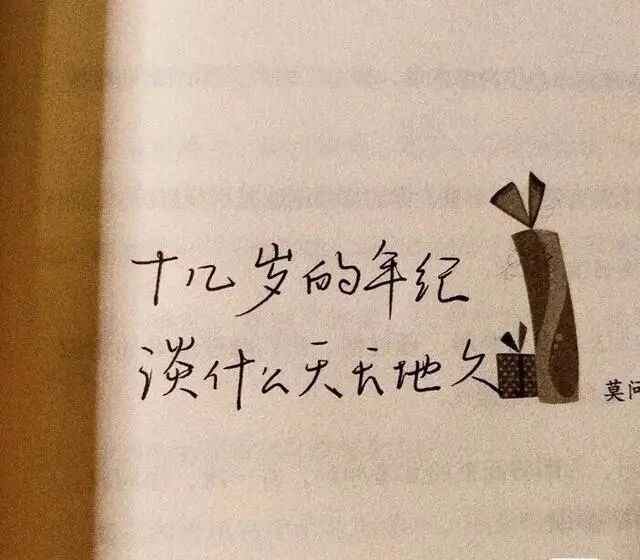 十几岁的年纪
谈什么天长地久
莫问